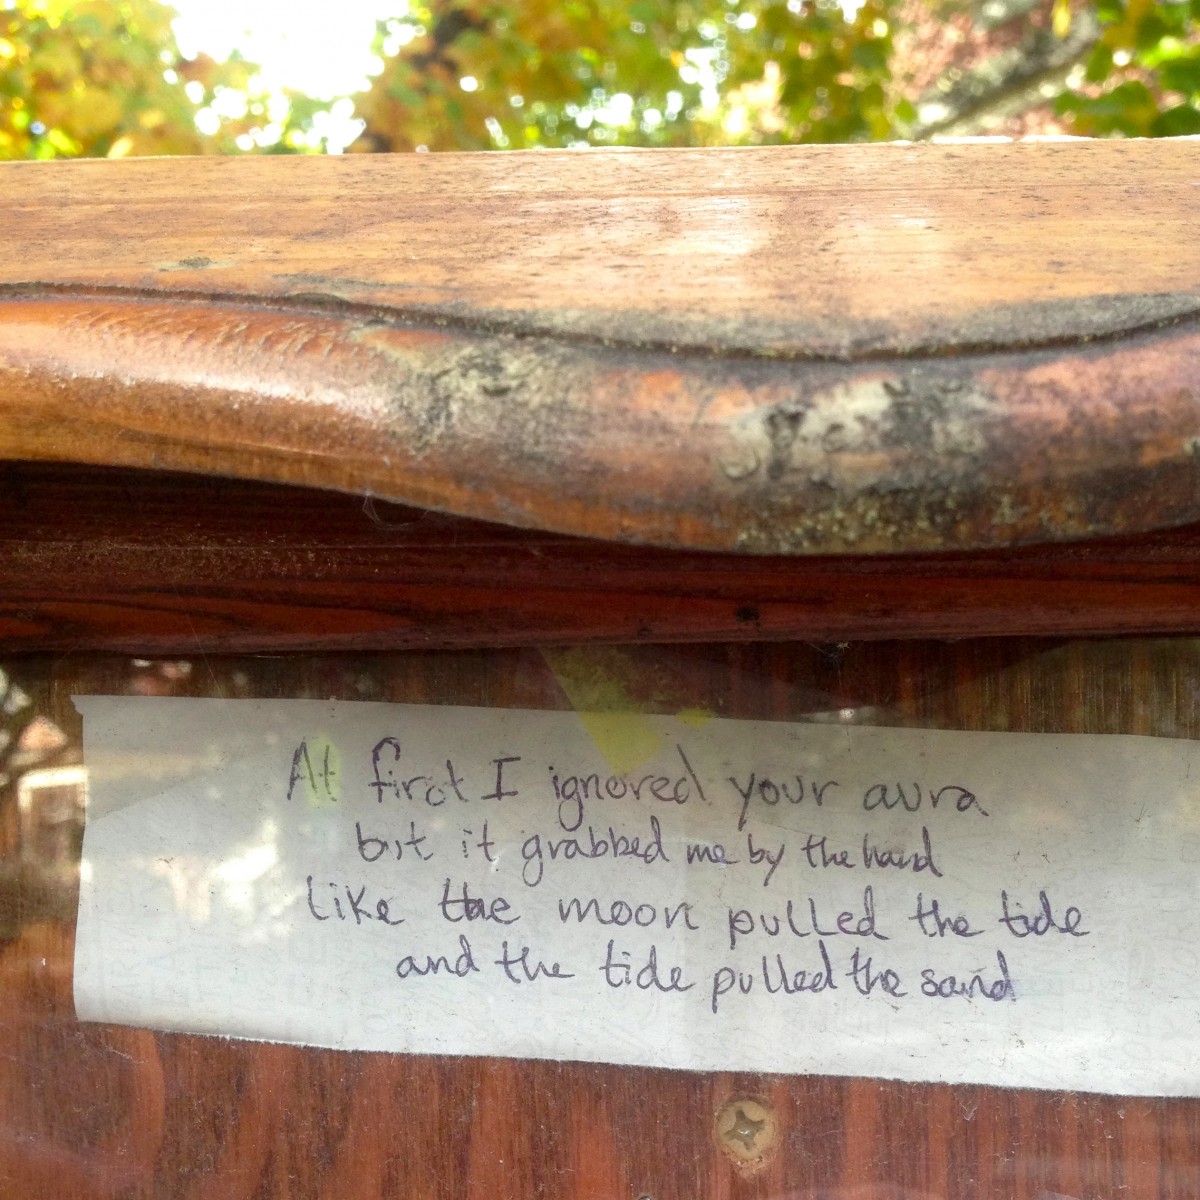 At first I ignored your aura
but it grabbed me by the hand
like the moon pulled the tide
and the tide pulled the sand